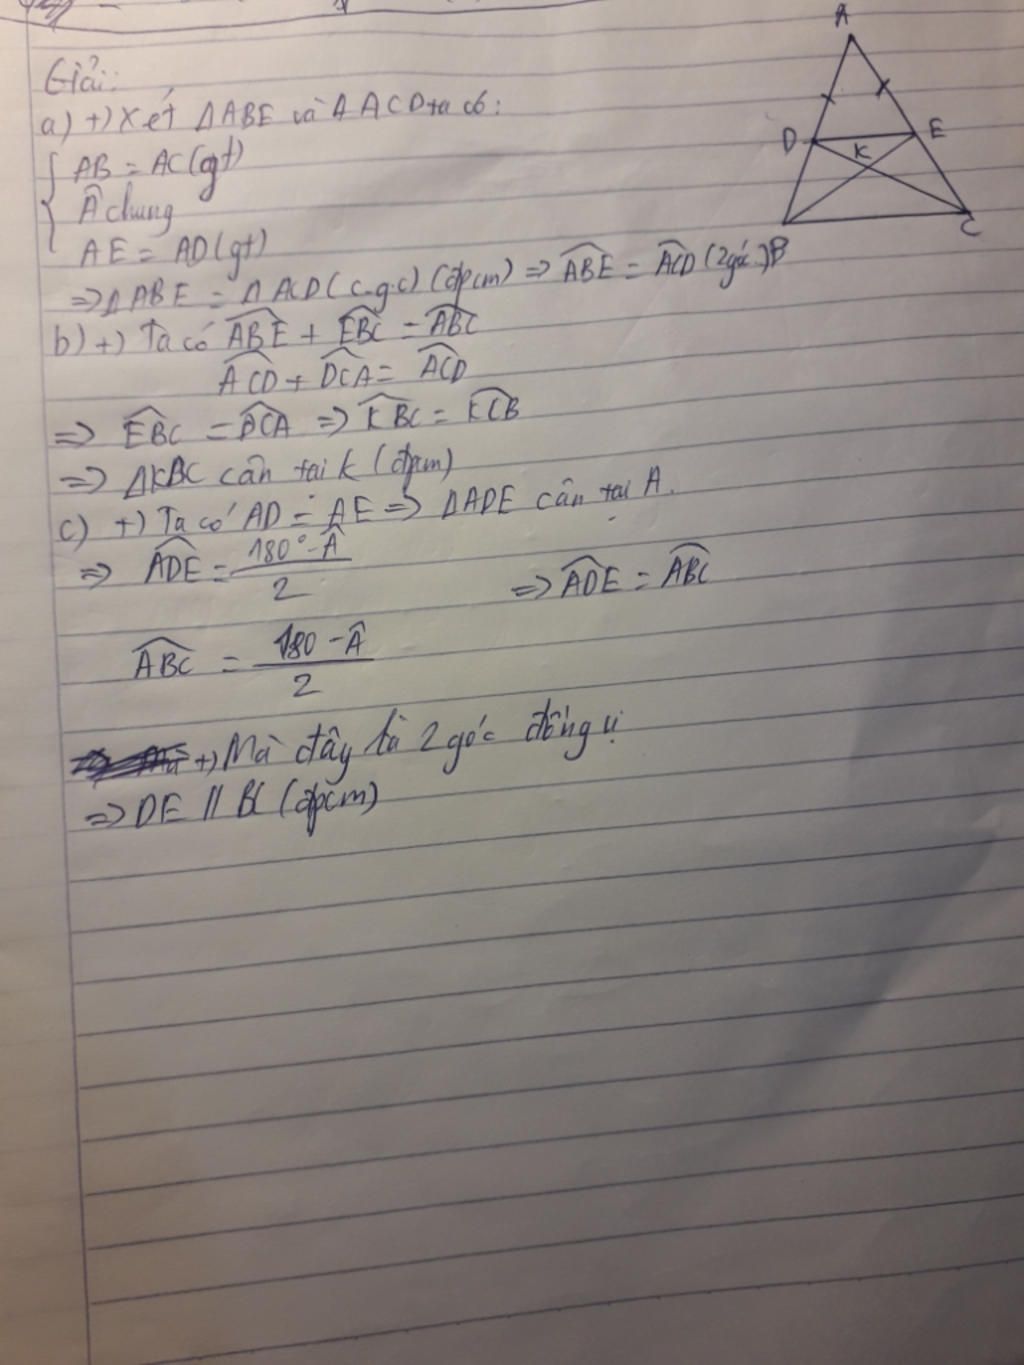 A
Giải:
a) +) Xét ΔABE và ΔACD ta có:
D E
K
AB = AC (gt)
Â chung
C
AE = AD (gt)
B
⇒ ΔABE = ΔACD (c.g.c) (đpcm) ⇒ \widehat{ABE} = \widehat{ACD} (2 góc)
b) +) Ta có \widehat{ABE} + \widehat{EBC} = \widehat{ABC}
\widehat{ACD} + \widehat{DCA} = \widehat{ACD}
⇒ \widehat{EBC} = \widehat{DCA} ⇒ \widehat{KBC} = \widehat{KCB}
⇒ ΔKBC cân tại K (đpcm)
c) +) Ta có AD = AE ⇒ ΔADE cân tại A.
⇒ \widehat{ADE} = \frac{180° - Â}{2} ⇒ \widehat{ADE} = \widehat{ABC}
\widehat{ABC} = \frac{180 - Â}{2}
+) Mà đây là 2 góc đồng vị
⇒ DE // BC (đpcm)